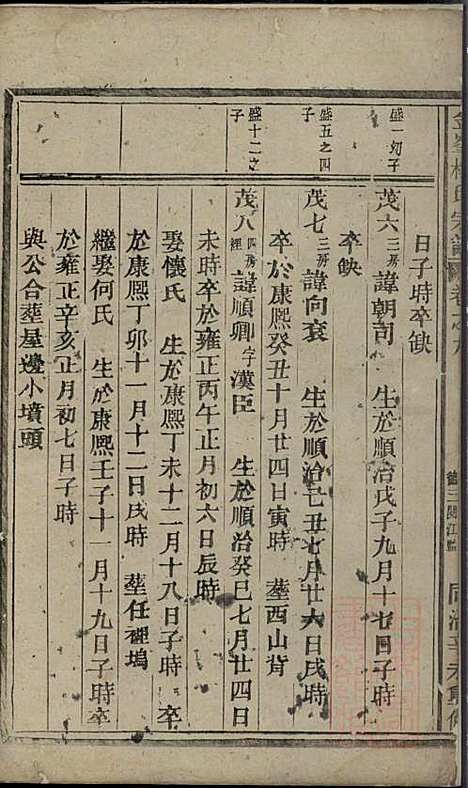 日子時卒缺
盛一幼子
茂六三房諱朝 生於順治戊子九月十七日子時
卒缺
盛五之四子
茂七三房諱向袞 生於順治己丑七月廿六日戌時
卒於康熙癸丑十月廿四日寅時 葬西山背
盛十二之子
茂八四房諱順卿字漢臣 生於順治癸巳七月廿四日
未時卒於雍正丙午正月初六日辰時
娶懷氏 生於康熙丁未十二月十八日子時 卒
於康熙丁卯十一月十二日戌時 葬任裡塢
繼娶何氏 生於康熙壬子十一月十九日子時卒
於雍正辛亥正月初七日子時
與公合葬屋邊小墳頭